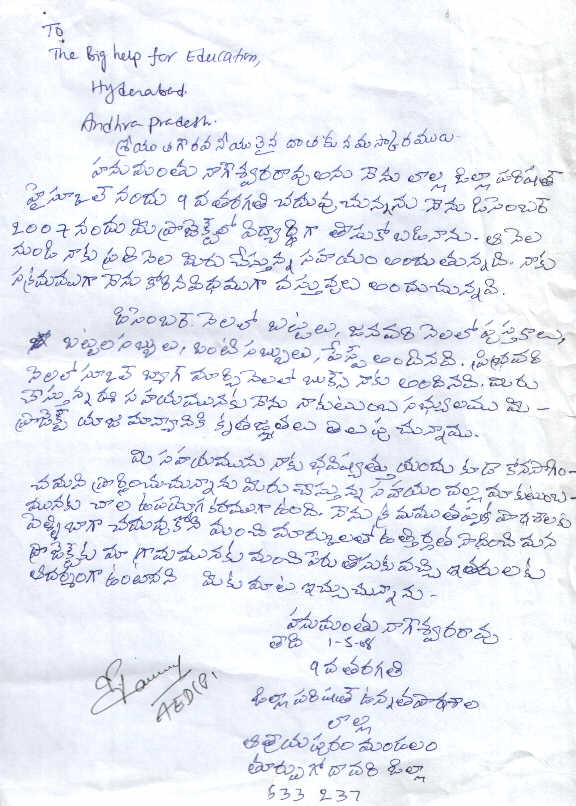 To
The Big help for Education,
Hyderabad.
Andhra pradesh.
శ్రీయుత గౌరవనీయులైన దాతకు నమస్కారములు.
హనుమంతు నాగేశ్వరరావు అను నేను లొల్ల జిల్లా పరిషత్
హైస్కూల్ నందు 9 వ తరగతి చదువుచున్నాను నేను డిసెంబర్
2007 నందు మీ ప్రాజెక్ట్‌లో విద్యార్థిగా తీసుకోబడినాను. ఆ నెల
నుండి నాకు ప్రతి నెల మీరు చేస్తున్న సహాయం అందుతున్నది. నాకు
సక్రమముగా నేను కోరినవిధముగా వస్తువులు అందుచున్నవి.
డిసెంబర్ నెలలో బట్టలు, జనవరి నెలలో పుస్తకాలు,
బట్టలసబ్బులు, ఒంటి సబ్బులు, పేస్ట్ అందినది. ఫిబ్రవరి
నెలలో స్కూల్ బ్యాగ్ మార్చి నెలలో బుక్స్ నాకు అందినది. మీరు
చేస్తున్న ఈ సహాయమునకు నేను నా కుటుంబ సభ్యులము మీ -
ప్రాజెక్ట్ యాజమాన్యానికి కృతజ్ఞతలు తెలుపుచున్నాము.
మీ సహాయమును నాకు భవిష్యత్తు యందు కూడా కొనసాగిం-
చమని ప్రార్థించుచున్నాను మీరు చేస్తున్న సహాయం వల్ల మా కుటుంబ-
మునకు చాల ఉపయోగకరముగా ఉంది. నేను క్రమము తప్పక పాఠశాలకు
వెళ్ళి బాగా చదువుకొని మంచి మార్కులతో ఉత్తీర్ణత సాధించి మన
ప్రాజెక్ట్‌కు మా గ్రామమునకు మంచి పేరు తీసుకు వచ్చి ఇతరులకు
ఆదర్శంగా ఉంటానని మీకు మాట ఇచ్చుచున్నాను -
హనుమంతు నాగేశ్వరరావు
తేది 1-5-08
9 వ తరగతి
జిల్లా పరిషత్ ఉన్నత పాఠశాల
లొల్ల
ఆత్రేయపురం మండలం
తూర్పు గోదావరి జిల్లా
533 237